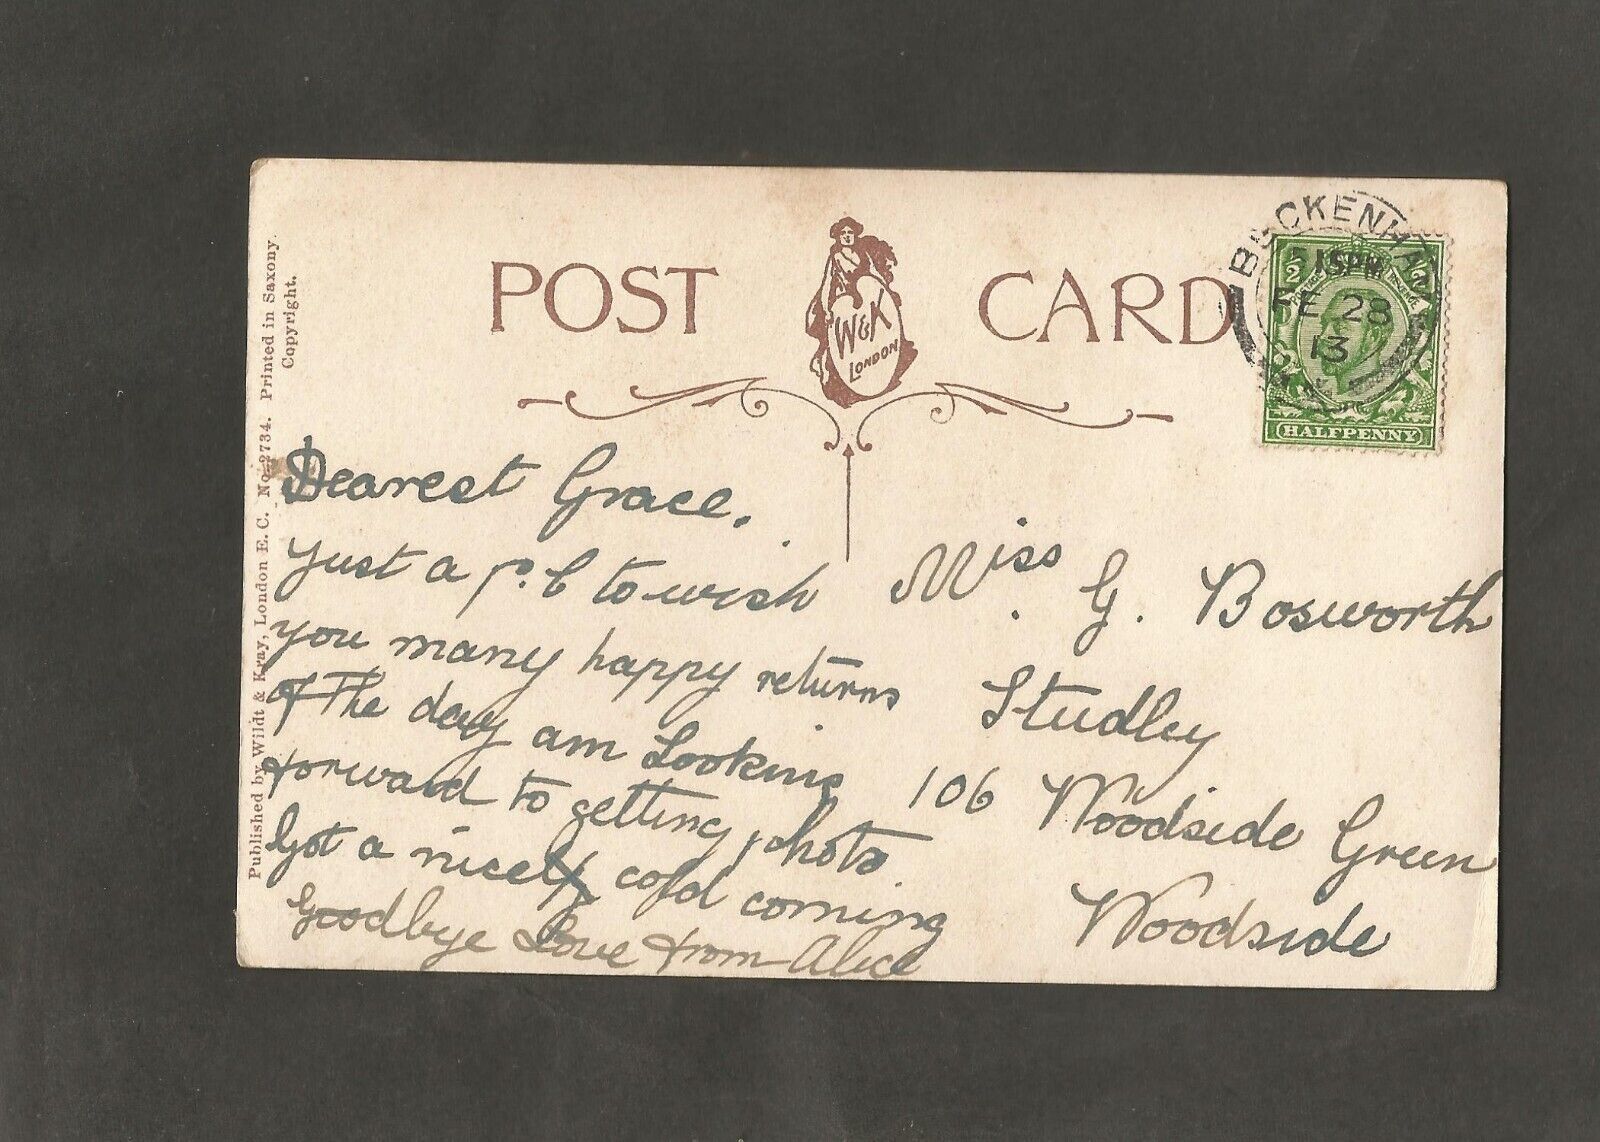 POST CARD
W&K
LONDON
BECKENHAM
15PM
FE 28
13
HALFPENNY
Published by Wildt & Kray, London E. C. No. 2734. Printed in Saxony.
Copyright.
Dearest Grace.
Just a p.c to wish
you many happy returns
of The day am Looking
forward to getting photo
Got a nice cold coming
Goodbye Love from Alice
Miss G. Bosworth
Studley
106 Woodside Green
Woodside